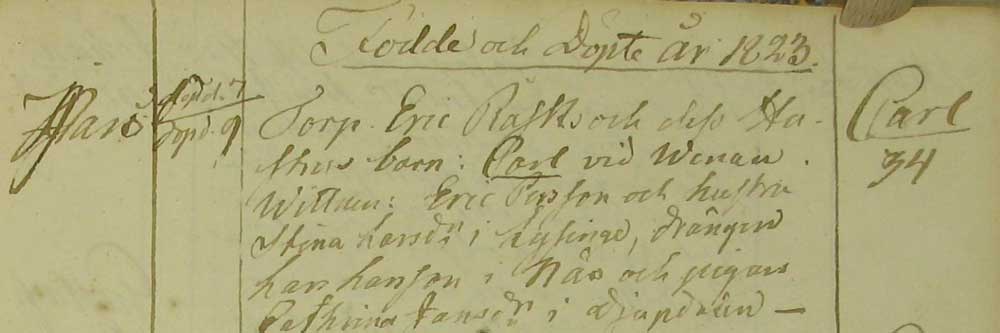 Födde och Döpte år 1823.
Mars
född. 7
döpt. 9
Torp. Eric Rasks och dess Hu-
strus barn: Carl vid Wenan.
Wittnen: Eric Persson och hustru
Stina Larsdr i Hysinge, drängen
Lars Larsson i Näs och pigan
Cathrina Jansdr i Djupdalen —
Carl
34